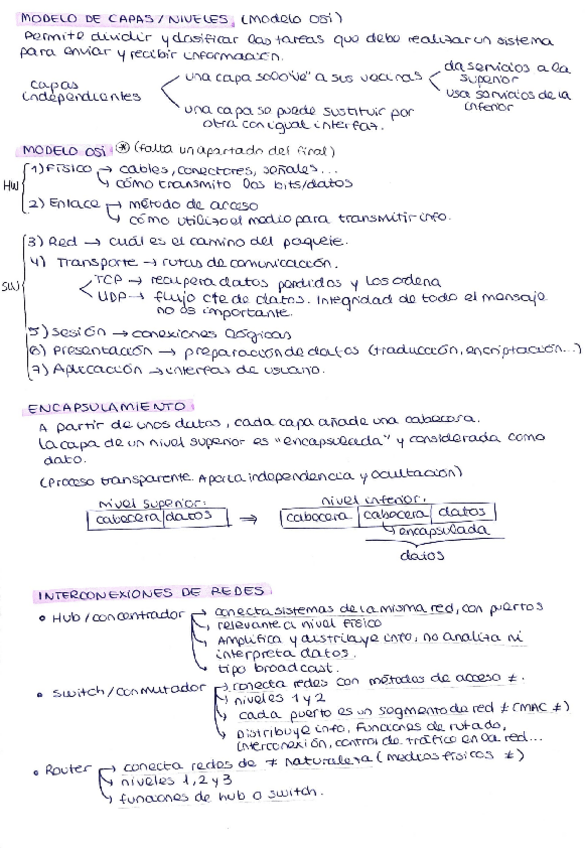 MODELO DE CAPAS/NIVELES. (Modelo OSI)
Permite dividir y clasificar las tareas que debe realizar un sistema
para enviar y recibir información.
capas independientes
una capa solo "ve" a sus vecinas
da servicios a la superior
usa servicios de la inferior
una capa se puede sustituir por
otra con igual interfaz.
MODELO OSI: * (falta un apartado del final)
HW
1) Físico → cables, conectores, señales...
→ cómo transmito los bits/datos
2) Enlace → método de acceso
→ cómo utilizo el medio para transmitir info.
SW
3) Red → cuál es el camino del paquete.
4) Transporte → rutas de comunicación.
TCP → recupera datos perdidos y los ordena
UDP → flujo cte de datos. Integridad de todo el mensaje
no es importante.
5) Sesión → conexiones lógicas
6) Presentación → preparación de datos (traducción, encriptación...)
7) Aplicación → interfaz de usuario.
ENCAPSULAMIENTO:
A partir de unos datos, cada capa añade una cabecera.
La capa de un nivel superior es "encapsulada" y considerada como
dato.
(Proceso transparente. Aporta independencia y ocultación)
nivel superior:
cabecera datos
→
nivel inferior:
cabecera cabecera datos
→ encapsulada
datos
INTERCONEXIONES DE REDES:
• Hub/concentrador → conecta sistemas de la misma red, con puertos
→ relevante a nivel físico
→ Amplifica y distribuye info, no analiza ni
interpreta datos.
→ tipo broadcast.
• Switch/conmutador → conecta redes con métodos de acceso ≠.
→ niveles 1 y 2
→ cada puerto es un segmento de red ≠ (MAC ≠)
→ Distribuye info, funciones de rutado,
interconexión, control de tráfico en la red...
• Router → conecta redes de ≠ naturaleza (medios físicos ≠)
→ niveles 1, 2 y 3
→ funciones de hub o switch.